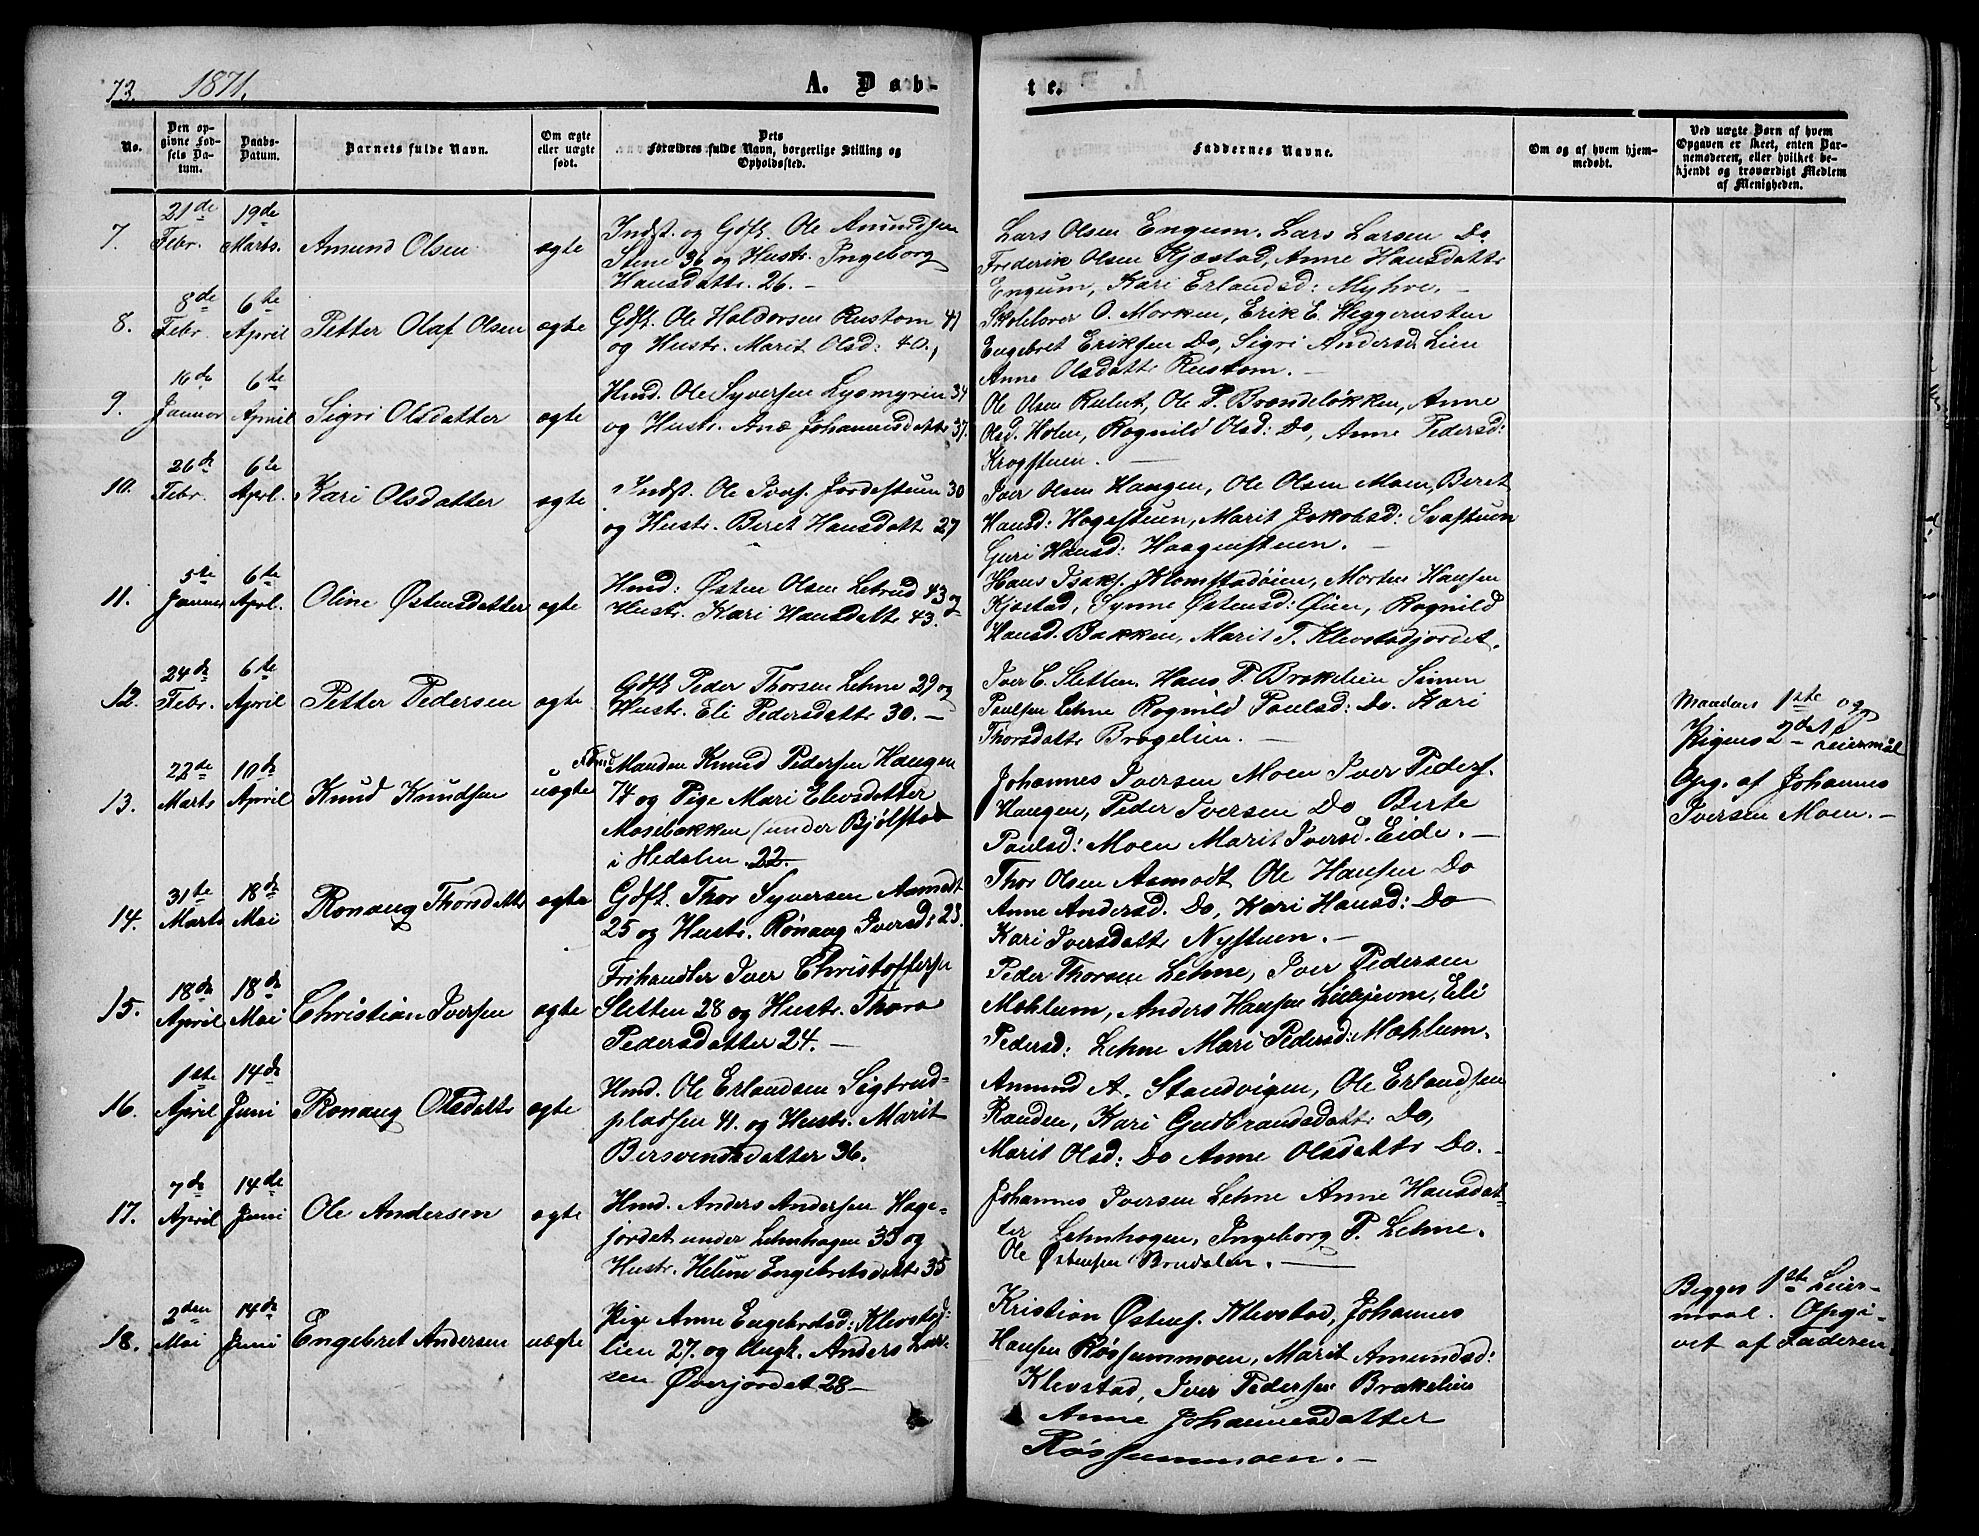 73. 1871. A. Dab-
te.
No.
Den op-
givne Fød-
sels Da-
tum.
Daabs-
Datum.
Barnets fulde Navn.
Om ægte
eller uægte
født.
Dets
Forældres fulde Navn, borgerlige Stilling og
Opholdssted.
Faddernes Navne.
Om og af hvem hjem-
medøbt.
Ved uægte Børn af hvem
Opgaven er skeet, enten Bar-
nemoderen, eller hvilket be-
kjendt og troværdigt Medlem
af Menigheden.
7.
21de
Febr.
19de
Marts.
Amund Olsen
ægte
Indst. og Gdfk. Ole Amundsen
Stene 36 og Hustr. Ingeborg
Hansdattr. 26. –
Lars Olsen Engum. Lars Larsen Do
Frederik Olsen Kjæstad, Anne Hansdattr
Engum, Kari Erlandsd: Myhre. –
8.
8de
Febr
6te
April
Petter Olaf Olsen
ægte
Gdfk. Ole Haldorsen Rustom 41
og Hustr. Marit Olsd: 40.,
Skolelærer O. Morken, Erik E. Heggerusten
Engebret Eriksen Do, Sigri Andersd. Lien
Anne Olsdattr Rustom. –
9.
16de
Januar
6te
April
Sigri Olsdatter
ægte
Hmd. Ole Syversen Lysmyren 34
og Hustr. Ane Johannesdattr 37.
Ole Olsen Rulut, Ole P. Brændeløkken, Anne
Olsd. Holen, Rognild Olsd: Do, Anne Pedersd:
Krogstuen. –
10.
26de
Febr.
6te
Aprl.
Kari Olsdatter
ægte
Indst. Ole Ivers. Jordestuen 30
og Hustr. Beret Hansdattr 27
Iver Olsen Haugen, Ole Olsen Moen, Beret
Hansd: Hagestuen, Marit Jakobsd: Svastuen
Guri Hansd: Haagenstuen. –
11.
5te
Januar
6te
Aprl.
Oline Østensdatter
ægte
Hmd: Østen Olsen Letrud 43 og
Hustr. Kari Hansdattr 43.
Hans Isaks. Klomstadøien, Morten Hansen
Kjæstad, Synne Østensd: Øien, Rognild
Hansd. Bakken, Marit T. Klevstadjordet.
12.
24de
Febr.
6te
April
Petter Pedersen
ægte
Gdfk Peder Thorsen Lehne 29 og
Hustr. Eli Pedersdattr 30. –
Iver C. Sletten, Hans P. Brakelien Simen
Paulsen Lehne Rognild Paulsd: Do. Kari
Thorsdattr Bragelien. –
13.
22de
Marts
10de
April
Knud Knudsen
uægte
Manden Knud Pedersen Haugen
74 og Pige Mari Elevsdatter
Mosebakken (under Bjølstad
i Hedalen 22.
Johannes Iversen Moen Iver Peders.
Haugen, Peder Iversen Do Birte
Paulsd: Moen Marit Iversd. Eide. –
Mandens 1ste og
Pigens 2det Leiermål
Opg. af Johannes
Iversen Moen. –
14.
31te
Marts
18de
Mai
Rønaug Thorsdattr
ægte
Gdfk. Thor Syversen Aamodt
25 og Hustr. Rønaug Iversd: 23.
Thor Olsen Aamodt Ole Hansen Do
Anne Andersd. Do, Kari Hansd: Do
Kari Iversdattr Nystuen. –
15.
18de
April
18de
Mai
Christian Iversen
ægte
Frihandler Iver Christoffersen
Sletten 28 og Hustr. Thora
Pedersdatter 24. –
Peder Thorsen Lehne, Iver Pedersen
Mæhlum, Anders Hansen Lillejevne, Eli
Pedersd: Lehne Mari Pedersd: Mæhlum.
16.
1ste
April
14de
Juni
Rønaug Olsdattr
ægte
Hmd. Ole Erlandsen Sigtrud-
pladsen 41. og Hustr. Marit
Bersvendsdatter 36.
Amund A. Standvigen, Ole Erlandsen
Randen, Kari Gudbrandsdattr Do,
Marit Olsd: Do Anne Olsdattr Do. –
17.
7de
April
14de
Juni
Ole Andersen
ægte
Hmd. Anders Andersen Hage-
jordet under Lehnhagen 35 og
Hustr. Helene Engebretsdattr 35
Johannes Iversen Lehne Anne Hansdat-
ter Lehnhagen, Ingeborg P. Lehne.
Ole Østensen Brudalen. –
18.
2den
Mai
14de
Juni
Engebret Andersen
uægte
Pige Anne Engebretsd: Klevstad-
lien 27. og Ungk. Anders Lar-
sen Øverjordet 28 –
Kristian Østens. Klevstad, Johannes
Hansen Røssummoen, Marit Amundsd:
Klevstad, Iver Pedersen Brakelien
Anne Johannesdatter
Røssummoen. –
Begges 1ste Leier-
maal. Opgi-
vet af Faderen